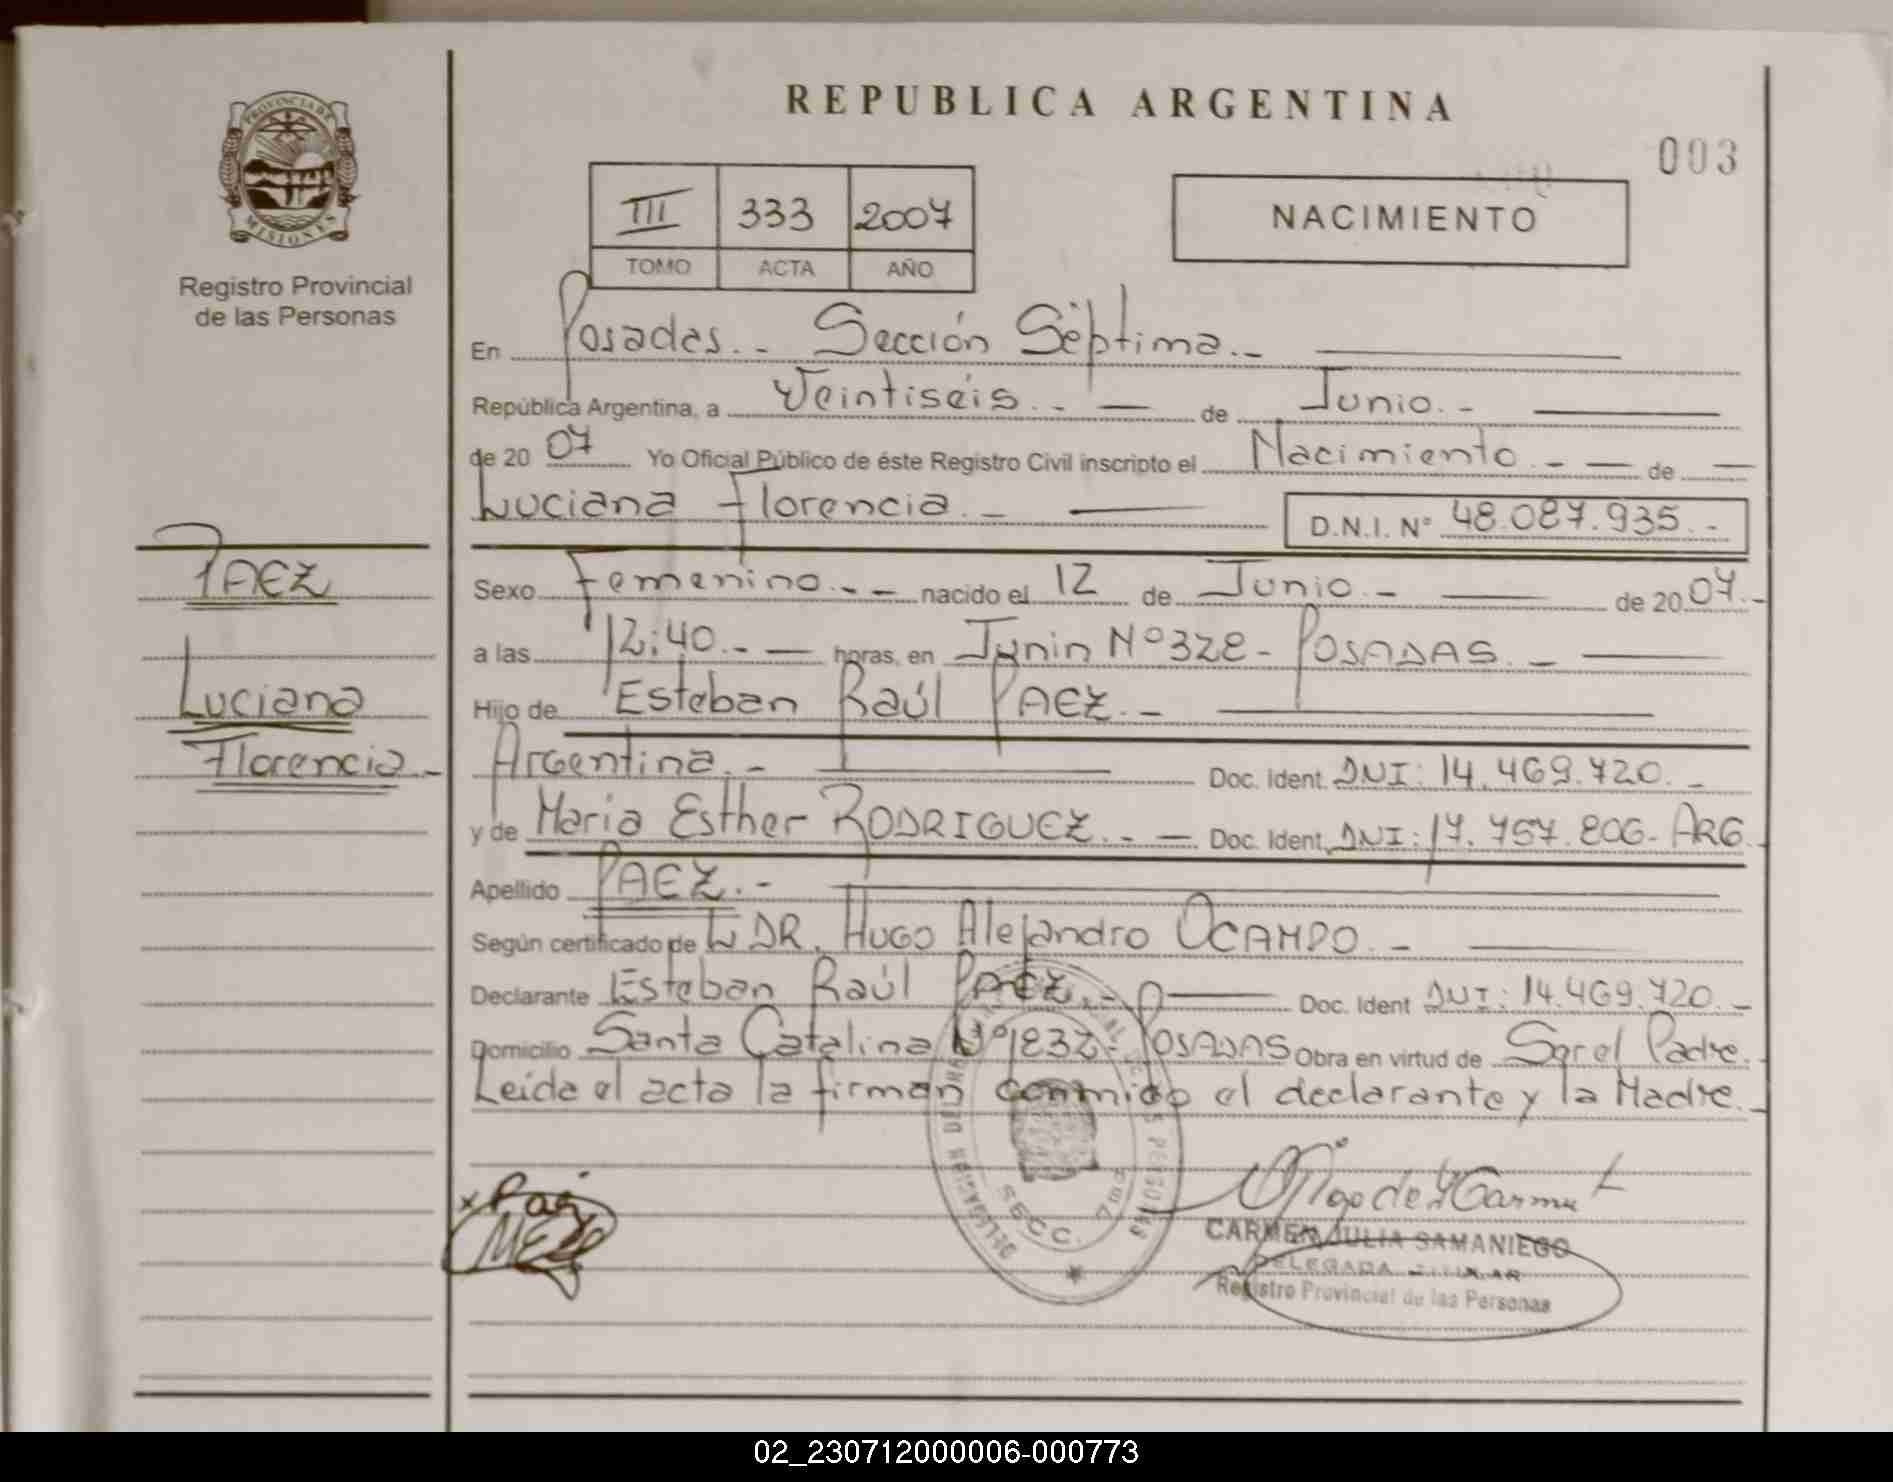 REPUBLICA ARGENTINA
003
PROVINCIA DE
MISIONES
Registro Provincial
de las Personas
III 333 2007
TOMO ACTA AÑO
NACIMIENTO
En Posadas.- Sección Séptima.-
República Argentina, a Veintiséis.- de Junio.-
de 2007 Yo Oficial Público de éste Registro Civil inscripto el Nacimiento.- de
Luciana Florencia.- D.N.I. N° 48.087.935.-
PAEZ
Luciana
Florencia.-
Sexo Femenino.- nacido el 12 de Junio.- de 2007.-
a las 12:40.- horas, en Junin Nº 328- POSADAS.-
Hijo de Esteban Raúl PAEZ.-
Argentina.- Doc. Ident. DNI: 14.469.720.-
y de Maria Esther RODRIGUEZ.- Doc. Ident. DNI: 17.757.806- ARG.-
Apellido PAEZ.-
Según certificado de DR. Hugo Alejandro OCAMPO.-
Declarante Esteban Raúl PAEZ.- Doc. Ident DNI: 14.469.720.-
Domicilio Santa Catalina Nº 1832- POSADAS Obra en virtud de Ser el Padre.-
Leida el acta la firman conmigo el declarante y la Madre.-
SECC. 7ma
CARMEN JULIA SAMANIEGO
DELEGADA TITULAR
Registro Provincial de las Personas
02_230712000006-000773